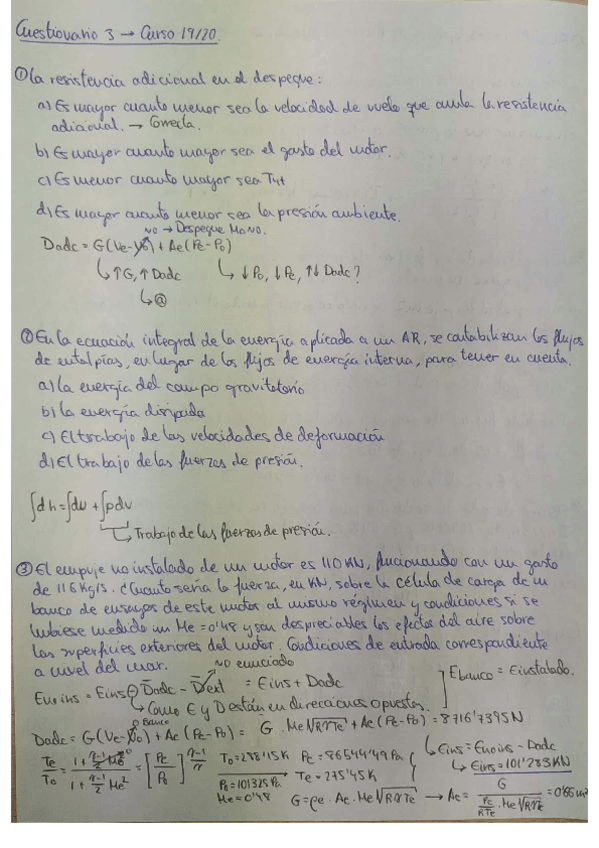 Cuestionario 3 → Curso 19/20.
① La resistencia adicional en el despegue:
a) Es mayor cuanto menor sea la velocidad de vuelo que anula la resistencia
adicional. → Correcta.
b) Es mayor cuanto mayor sea el gasto del motor.
c) Es menor cuanto mayor sea T4t
d) Es mayor cuanto menor sea la presión ambiente.
NO → Despegue M0≈0.
Dadc = G(Ve-V0) + Ae(Pe-P0)
↳ ↑G, ↑Dadc ↳ ↓P0, ↓Pe, ↑↓ Dadc?
↳ @
② En la ecuación integral de la energía aplicada a un AR, se contabilizan los flujos
de entalpías, en lugar de los flujos de energía interna, para tener en cuenta.
a) La energía del campo gravitatorio
b) La energía disipada
c) El trabajo de las velocidades de deformación
d) El trabajo de las fuerzas de presión.
∫dh = ∫du + ∫pdv
↳ Trabajo de las fuerzas de presión.
③ El empuje no instalado de un motor es 110 KN, funcionando con un gasto
de 116 Kg/s. ¿Cuánto sería la fuerza, en KN, sobre la célula de carga de un
banco de ensayos de este motor al mismo régimen y condiciones si se
hubiese medido un Me = 0'48 y son despreciables los efectos del aire sobre
las superficies exteriores del motor. Condiciones de entrada correspondiente
a nivel del mar.
NO enunciado
Enoins = Eins ⊖ Dadc - Dext = Eins + Dadc ] Ebanco = Einstalado.
↳ Como E y D están en direcciones opuestas.
Banco
Dadc = G(Ve-V0) + Ae(Pe-P0) = G·Me√RγTe + Ae(Pe-P0) = 8716'7395 N
↳ Eins = Enoins - Dadc
↳ Eins = 101'283 KN
Te/T0 = (1 + γ-1/2 M0²)/(1 + γ-1/2 Me²) = [Pe/P0]^γ-1/γ
T0 = 288'15 K Pe = 86544'49 Pa
P0 = 101325 Pa Te = 275'45 K
Me = 0'48 G = ρe·Ae·Me√RγTe → Ae = G/(Pe/RTe · Me√RγTe) = 0'86 m²